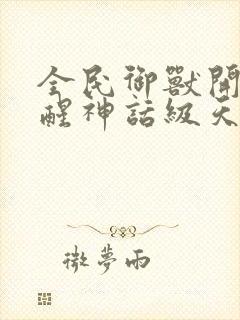 全民御獸開
醒神話級天
微夢雨